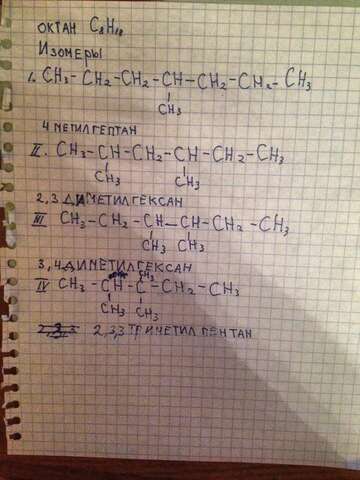 ОКТАН C₈H₁₈
ИЗОМЕРЫ
I. CH₃-CH₂-CH₂-CH-CH₂-CH₂-CH₃
CH₃
4 МЕТИЛГЕПТАН
II. CH₃-CH-CH₂-CH-CH₂-CH₃
CH₃ CH₃
2,3 ДИМЕТИЛГЕКСАН
III CH₃-CH₂-CH-CH-CH₂-CH₃
CH₃ CH₃
3,4 ДИМЕТИЛГЕКСАН
CH₃
IV CH₃-CH-C-CH₂-CH₃
CH₃ CH₃
2,3,3 ТРИМЕТИЛ ПЕНТАН